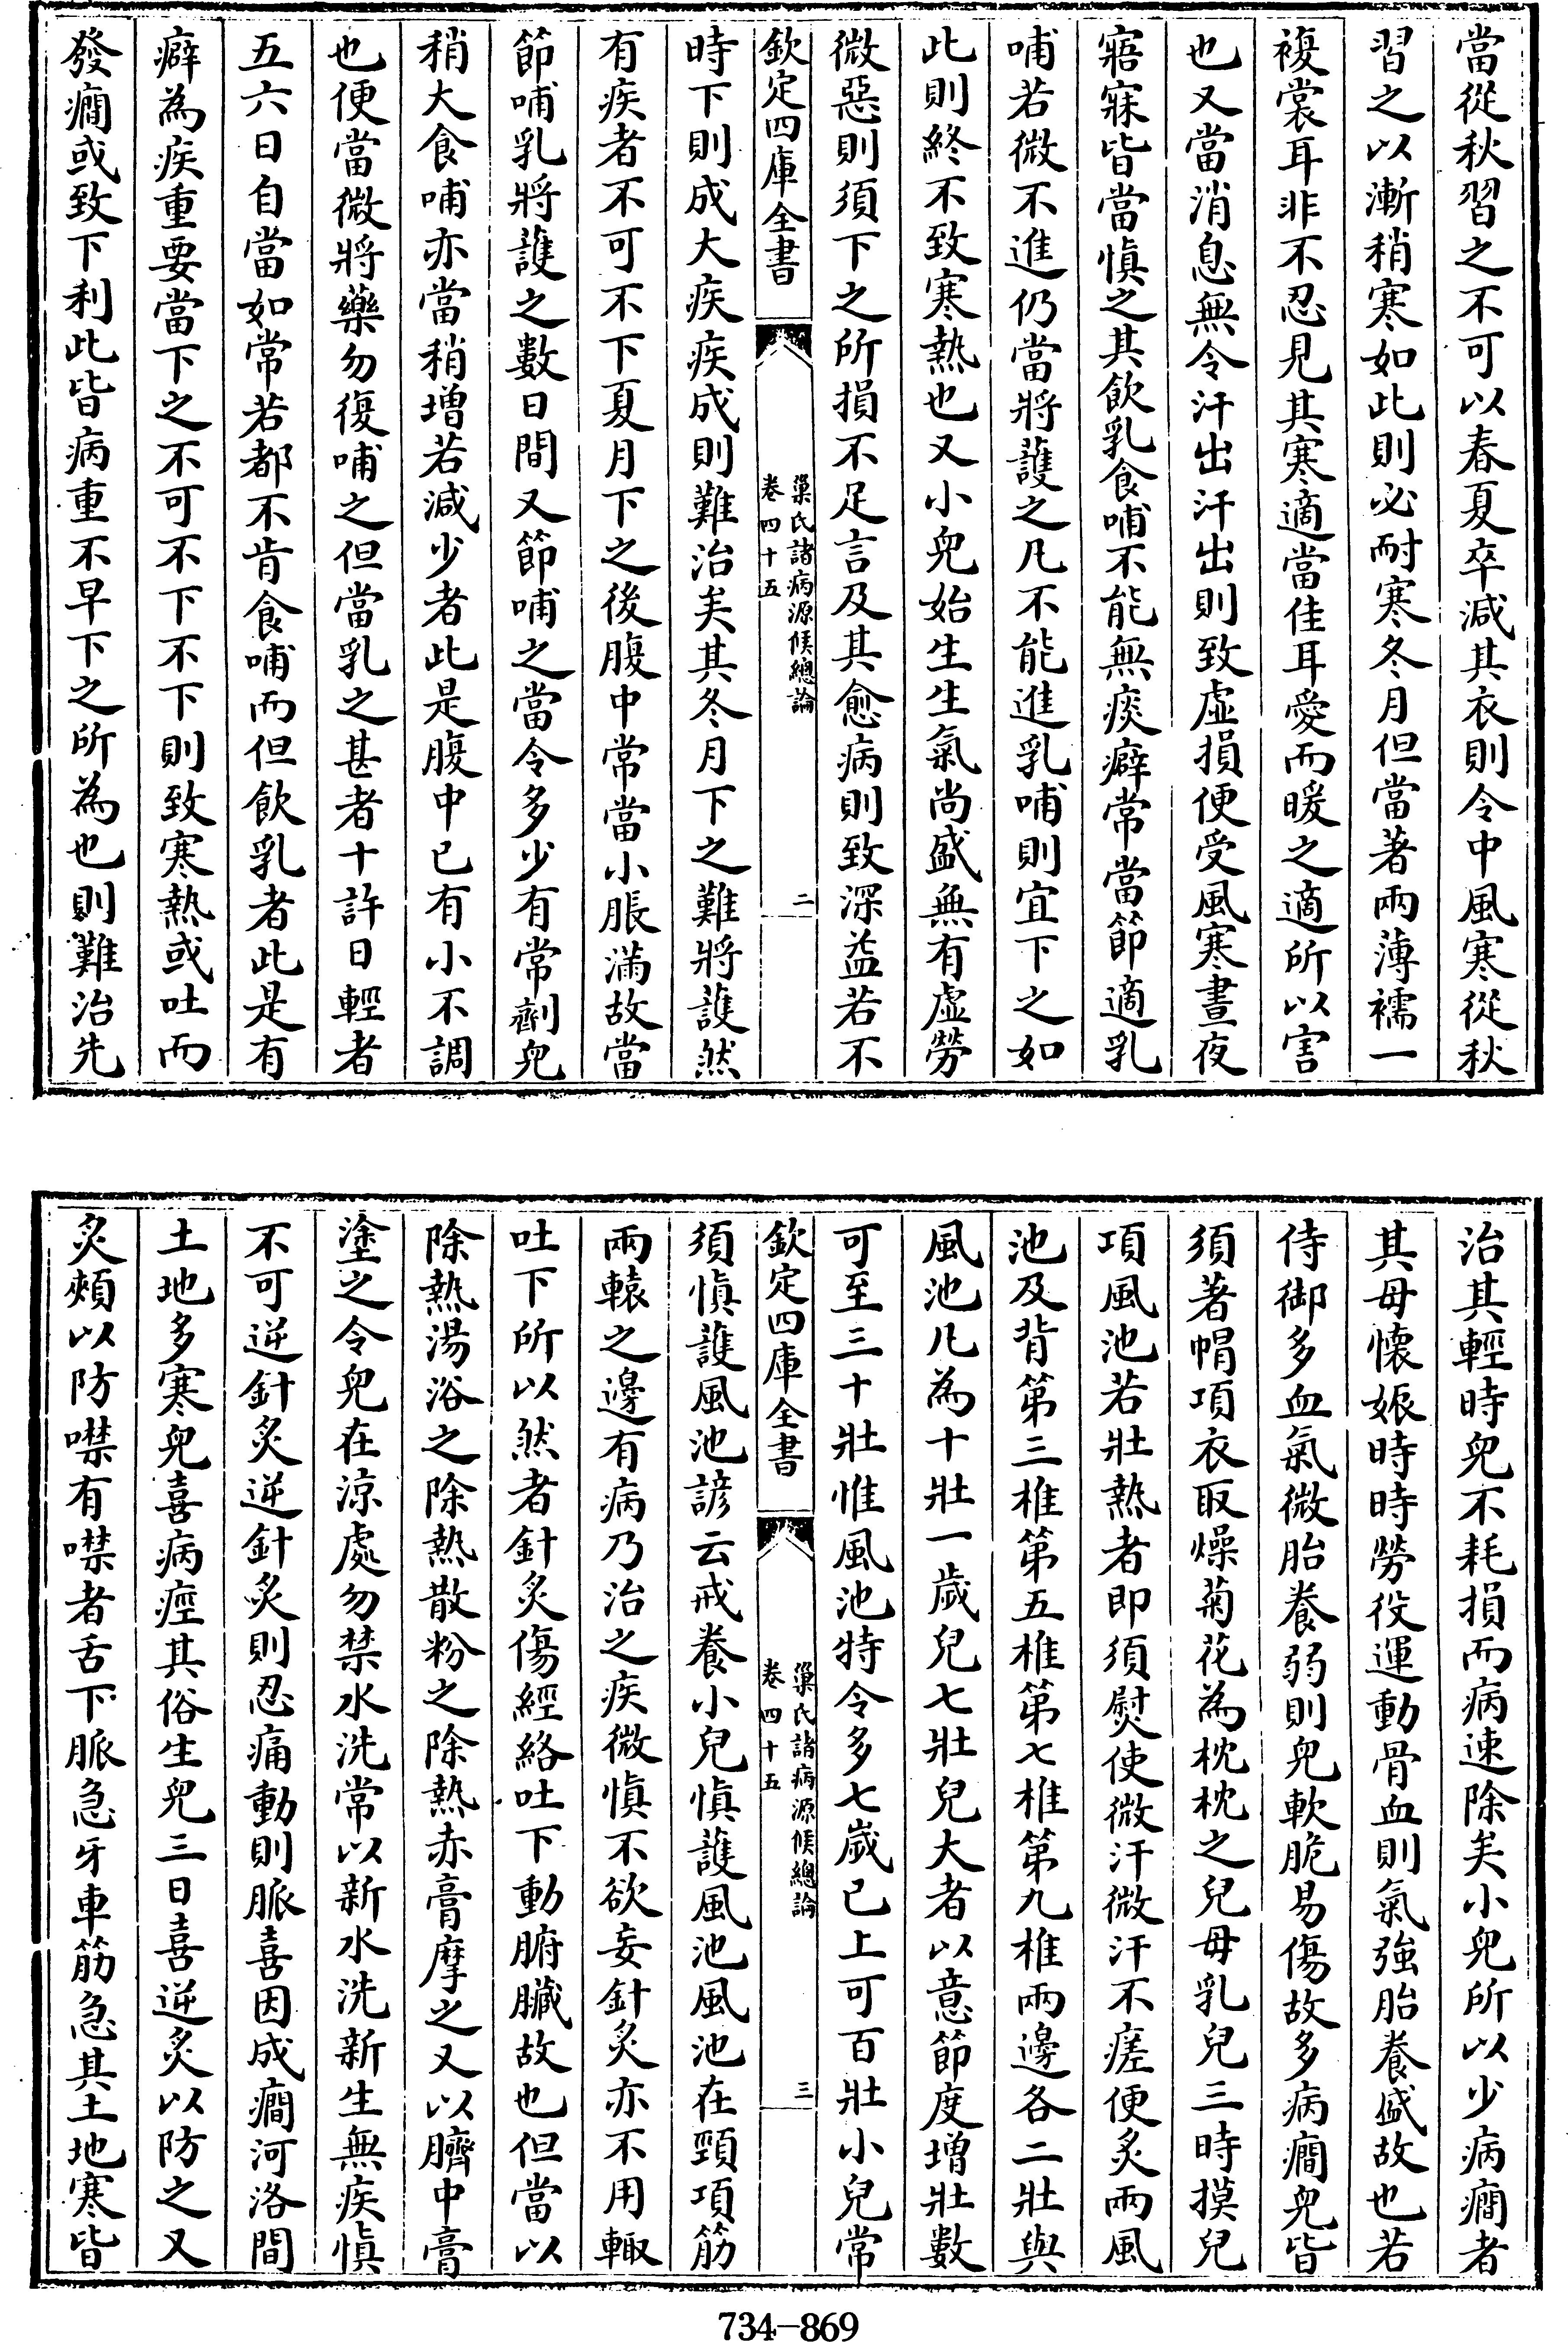 當從秋習之不可以春夏卒減其衣則令中風寒從秋
習之以漸稍寒如此則必耐寒冬月但當著兩薄襦一
複裳耳非不忍見其寒適當佳耳愛而暖之適所以害
也又當消息無令汗出汗出則致虛損便受風寒晝夜
寤寐皆當慎之其飲乳食哺不能無痰癖常當節適乳
哺若微不進仍當將護之凡不能進乳哺則宜下之如
此則終不致寒熱也又小兒始生生氣尚盛無有虛勞
微惡則須下之所損不足言及其愈病則致深益若不
欽定四庫全書
巢氏諸病源候總論
卷四十五
二
時下則成大疾疾成則難治矣其冬月下之難將護然
有疾者不可不下夏月下之後腹中常當小脹滿故當
節哺乳將護之數日間又節哺之當令多少有常劑兒
稍大食哺亦當稍增若減少者此是腹中已有小不調
也便當微將藥勿復哺之但當乳之甚者十許日輕者
五六日自當如常若都不肯食哺而但飲乳者此是有
癖為疾重要當下之不可不下不下則致寒熱或吐而
發癇或致下利此皆病重不早下之所為也則難治先
治其輕時兒不耗損而病速除矣小兒所以少病癇者
其母懷娠時時勞役運動骨血則氣強胎養盛故也若
侍御多血氣微胎養弱則兒軟脆易傷故多病癇兒皆
須著帽項衣取燥菊花為枕枕之兒母乳兒三時摸兒
項風池若壯熱者即須熨使微汗微汗不瘥便灸兩風
池及背第三椎第五椎第七椎第九椎兩邊各二壯與
風池凡為十壯一歲兒七壯兒大者以意節度增壯數
可至三十壯惟風池特令多七歲已上可百壯小兒常
欽定四庫全書
巢氏諸病源候總論
卷四十五
三
須慎護風池諺云戒養小兒慎護風池風池在頸項筋
兩轅之邊有病乃治之疾微慎不欲妄針灸亦不用輙
吐下所以然者針灸傷經絡吐下動腑臟故也但當以
除熱湯浴之除熱散粉之除熱赤膏摩之又以臍中膏
塗之令兒在涼處勿禁水洗常以新水洗新生無疾慎
不可逆針灸逆針灸則忍痛動則脈喜因成癇河洛間
土地多寒兒喜病痙其俗生兒三日喜逆灸以防之又
灸頰以防噤有噤者舌下脈急牙車筋急其土地寒皆
734-869